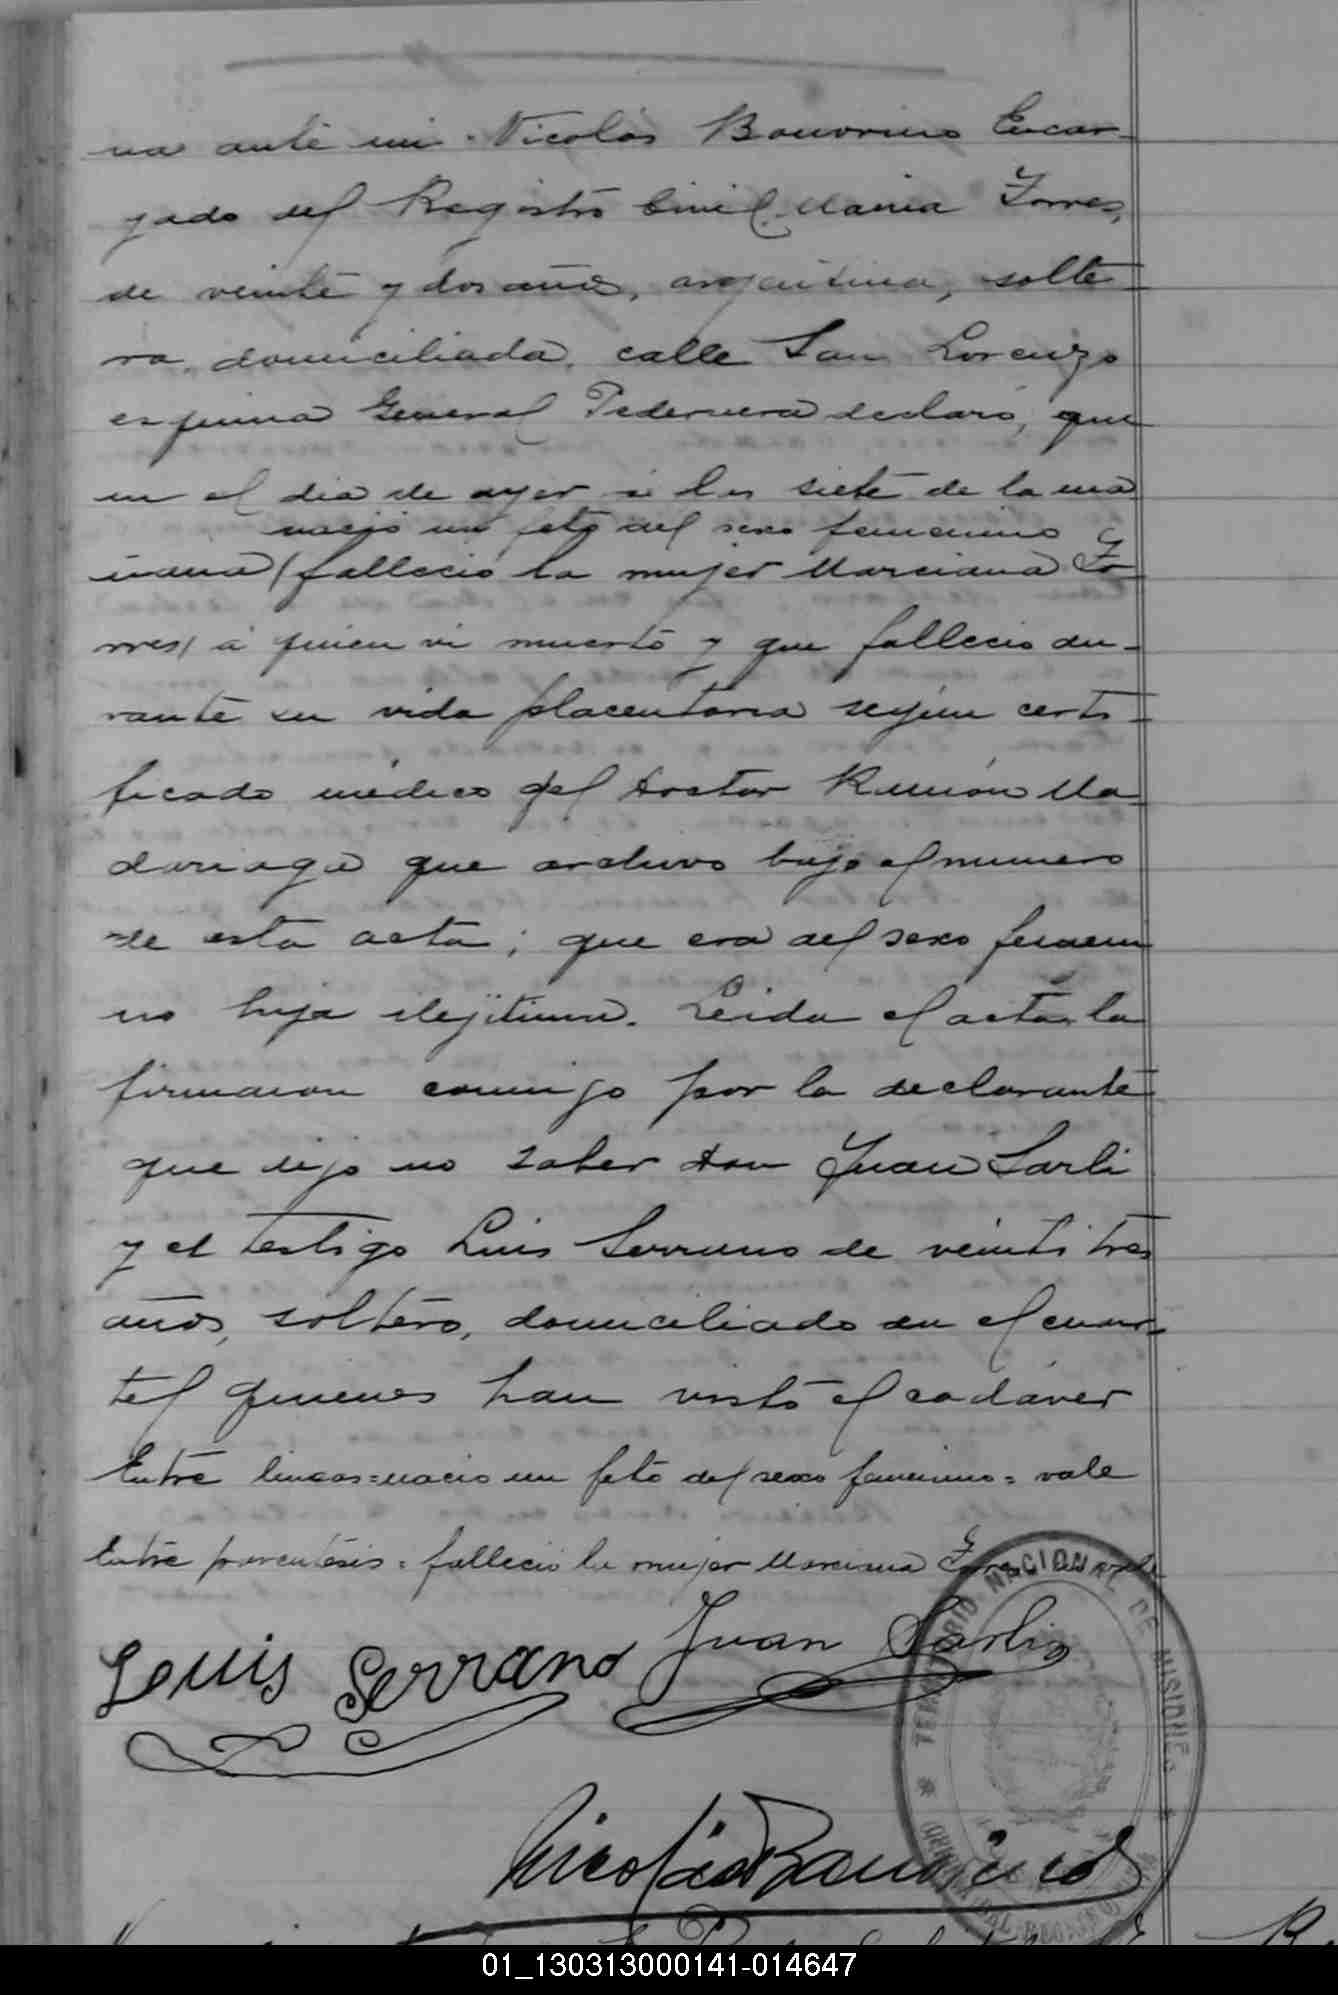 na ante mi Nicolás Bouvrino Encar-
gado del Registro Civil, Maria Torres,
de veinte y dos años, argentina, solte-
ra, domiciliada, calle San Lorenzo
esquina General Pedernera declaró, que
en el dia de ayer á las siete de la ma
nació un feto del sexo femenino
ñana (fallecio la mujer Marciana To-
rres) á quien vi muerto y que fallecio du-
rante su vida placentaria según certi-
ficado médico del Doctor Ramón Ma-
dariaga que archivo bajo el numero
de esta acta; que era del sexo femeni
no hija ilejitima. Leida el acta, la
firmaron conmigo por la declarante
que dijo no saber Don Juan Sarli
y el testigo Luis Serrano de veintitres
años, soltero, domiciliado en el cuar-
tel quienes han visto el cadáver
Entre lineas=nacio un feto del sexo femenino=vale
Entre parentésis=fallecio la mujer Marciana Torres
Louis Serrano Juan Sarli
TERRITORIO NACIONAL DE MISIONES
Nicolás
01_130313000141-014647